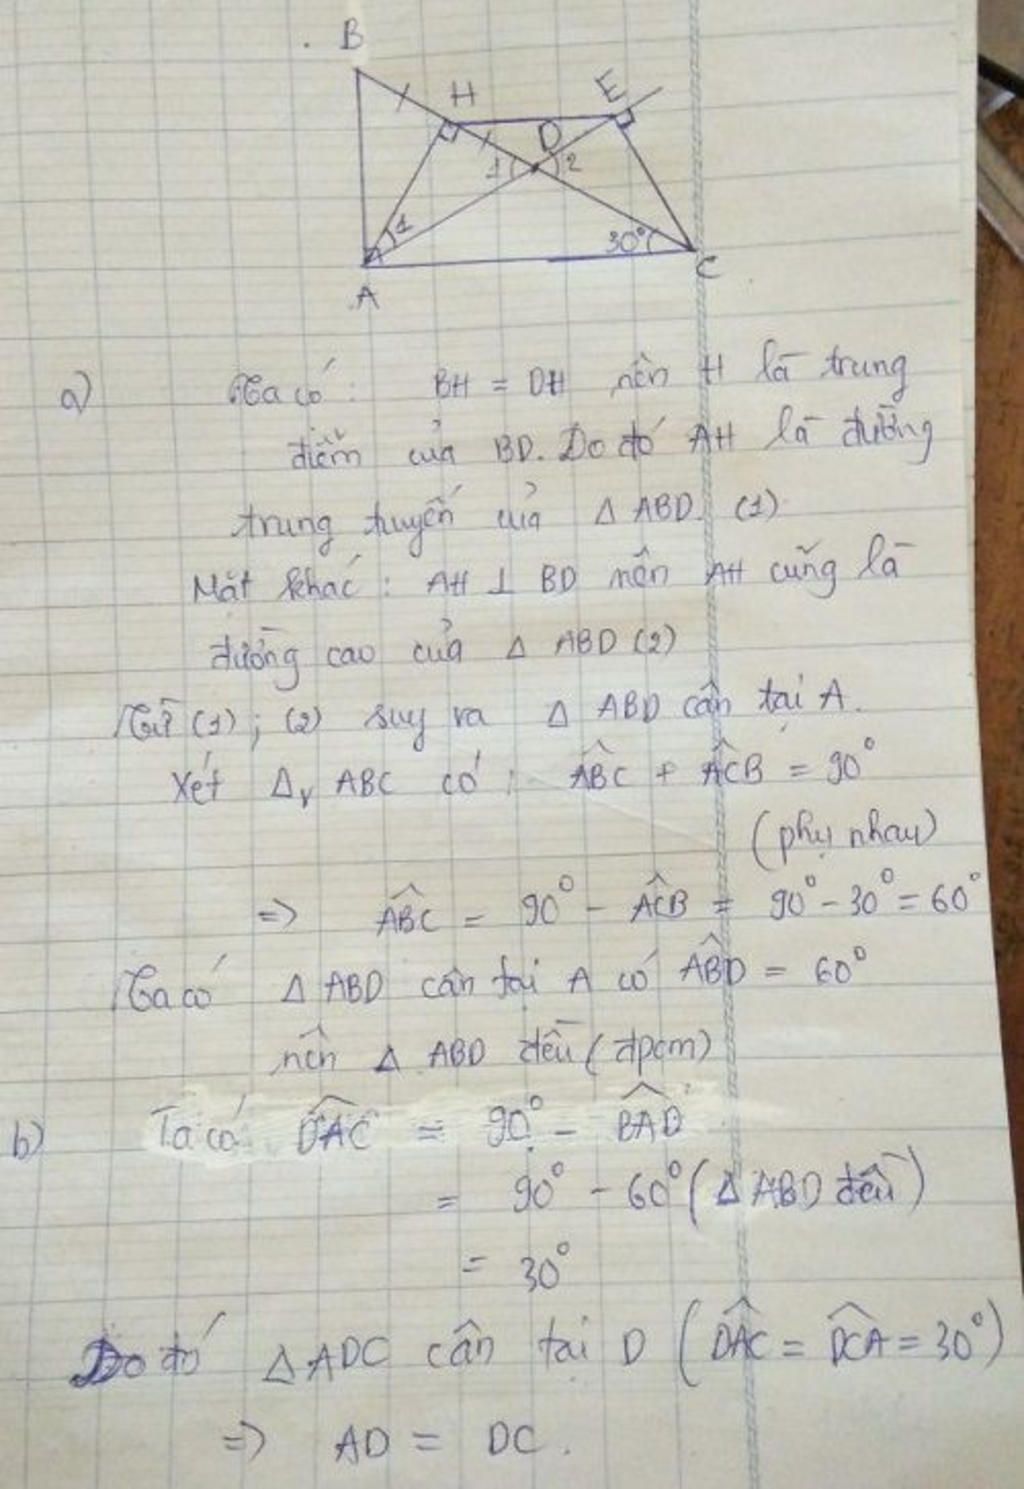 B
H
E
D
1
2
1
30°
A
C
a) Ta có: BH = DH nên H là trung
điểm của BD. Do đó AH là đường
trung tuyến của Δ ABD. (1)
Mặt khác: AH ⊥ BD nên AH cũng là
đường cao của Δ ABD (2)
Từ (1); (2) suy ra Δ ABD cân tại A.
Xét Δv ABC có: ABC^ + ACB^ = 90°
(phụ nhau)
=> ABC^ = 90° - ACB^ = 90° - 30° = 60°
Ta có Δ ABD cân tại A có ABD^ = 60°
nên Δ ABD đều (đpcm)
b) Ta có DAC^ = 90° - BAD^
= 90° - 60° (Δ ABD đều)
= 30°
Do đó Δ ADC cân tại D (DAC^ = DCA^ = 30°)
=> AD = DC.